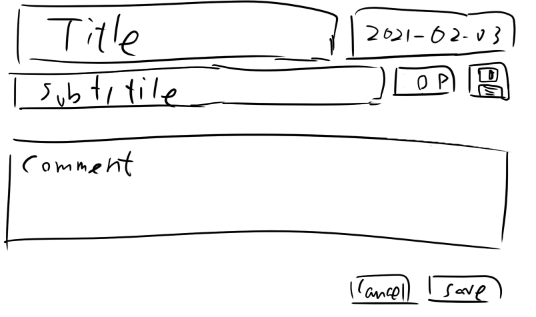 Title 2021-02-03
Subtitile OP
Comment
Cancel Save